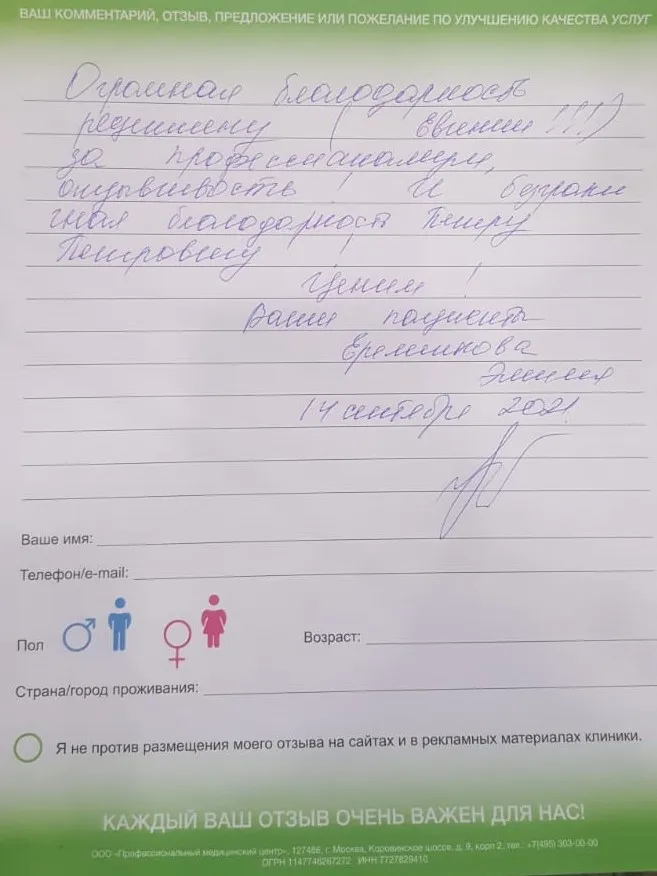 ВАШ КОММЕНТАРИЙ, ОТЗЫВ, ПРЕДЛОЖЕНИЕ ИЛИ ПОЖЕЛАНИЕ ПО УЛУЧШЕНИЮ КАЧЕСТВА УСЛУГ
Огромная благодарность
( Евгении !!!)
за профессионализм,
отзывчивость ! И безграни
чная благодарность Петру
Петровичу !
Ценим !
Ваши пациенты
Эмилия
14 сентября 2021
Ваше имя:
Телефон/e-mail:
Пол
Возраст:
Страна/город проживания:
Я не против размещения моего отзыва на сайтах и в рекламных материалах клиники.
КАЖДЫЙ ВАШ ОТЗЫВ ОЧЕНЬ ВАЖЕН ДЛЯ НАС!
ООО «Профессиональный медицинский центр», 127486, г. Москва, Коровинское шоссе, д. 9, корп 2, тел.: +7(495) 303-00-00
ОГРН 1147746267272 ИНН 7727829410